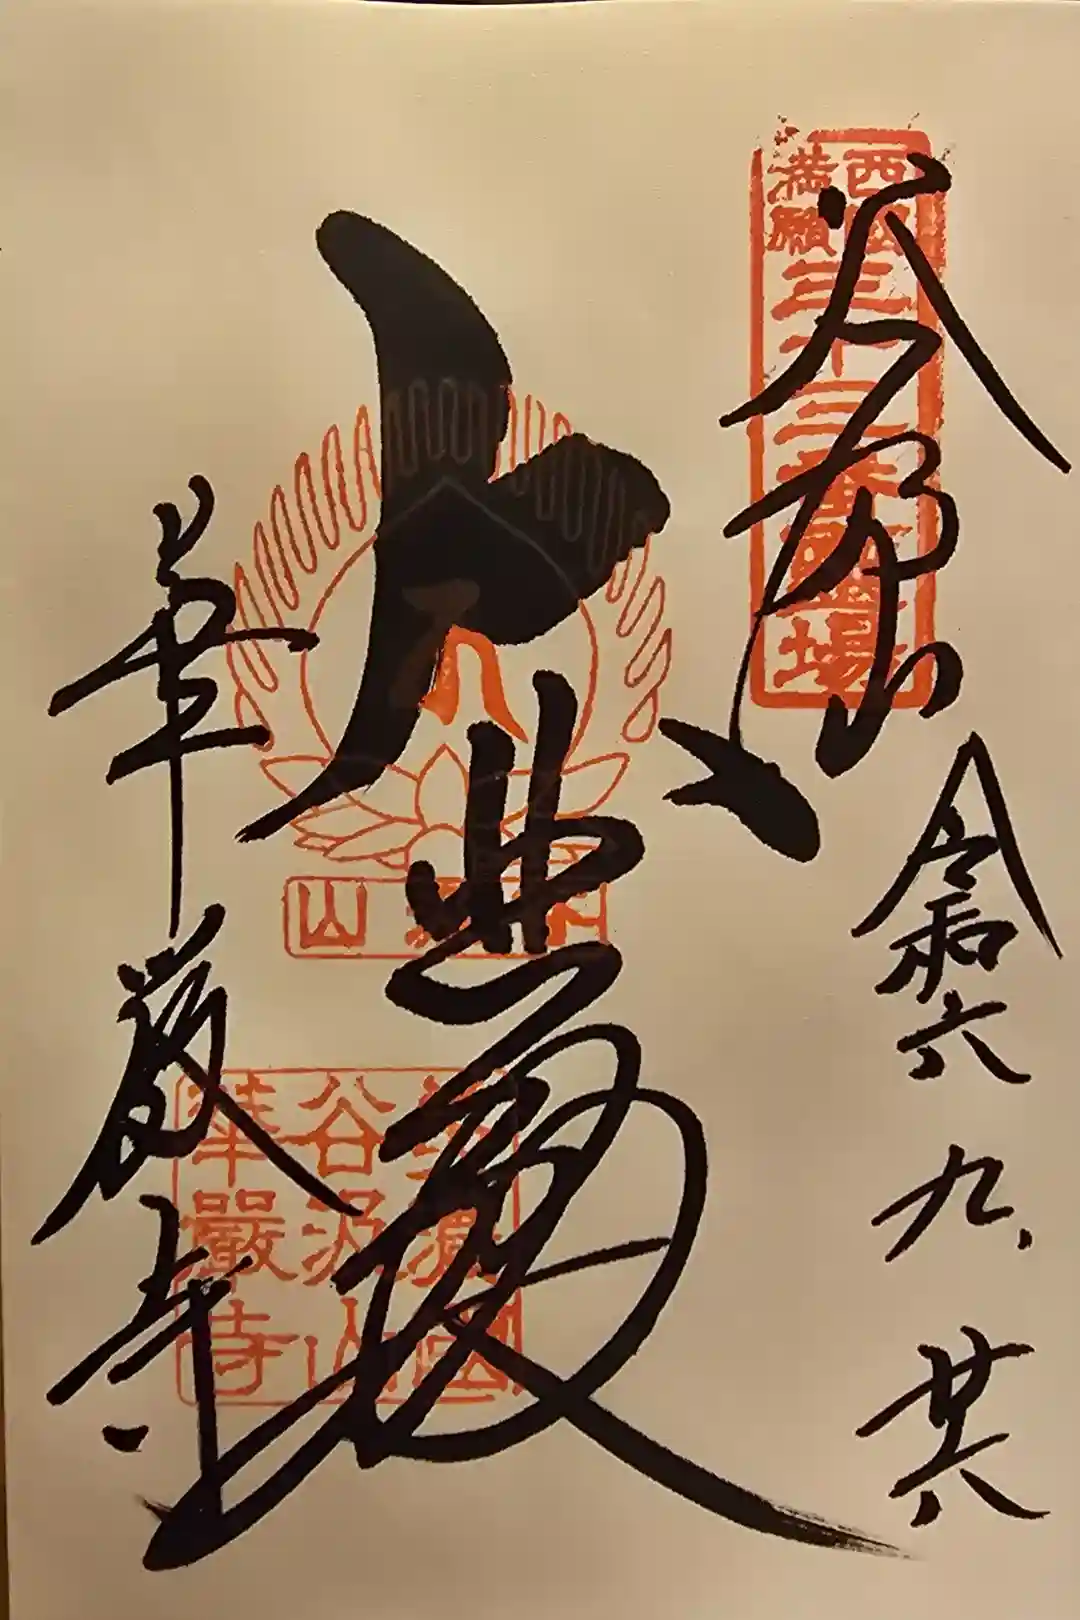 西國
満願
三十三番霊場
谷汲山
令和六 九、廿六
大悲殿
美濃國
谷汲山
華嚴寺
華厳寺